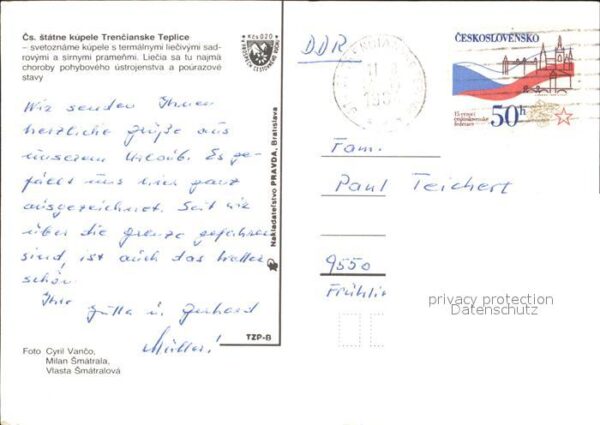 Čs. štátne kúpele Trenčianske Teplice
– svetoznáme kúpele s termálnymi liečivými sad-
rovými a sírnymi prameňmi. Liečia sa tu najmä
choroby pohybového ústrojenstva a poúrazové
stavy
Kčs 0,20
Wir senden Ihnen
herzliche Grüße aus
unserem Urlaub. Es ge-
fällt uns hier ganz
ausgezeichnet. Seit wir
über die Grenze gefahren
sind, ist auch das Wetter
schön.
Ihre
Jutta u. Gerhard
Müller!
Foto Cyril Vančo,
Milan Šmátrala,
Vlasta Šmátralová
Nakladateľstvo PRAVDA, Bratislava
TZP-B
DDR
ČESKOSLOVENSKO
15 výročí
československé
federace
50h
Fam.
Paul Teichert
9550
privacy protection
Datenschutz